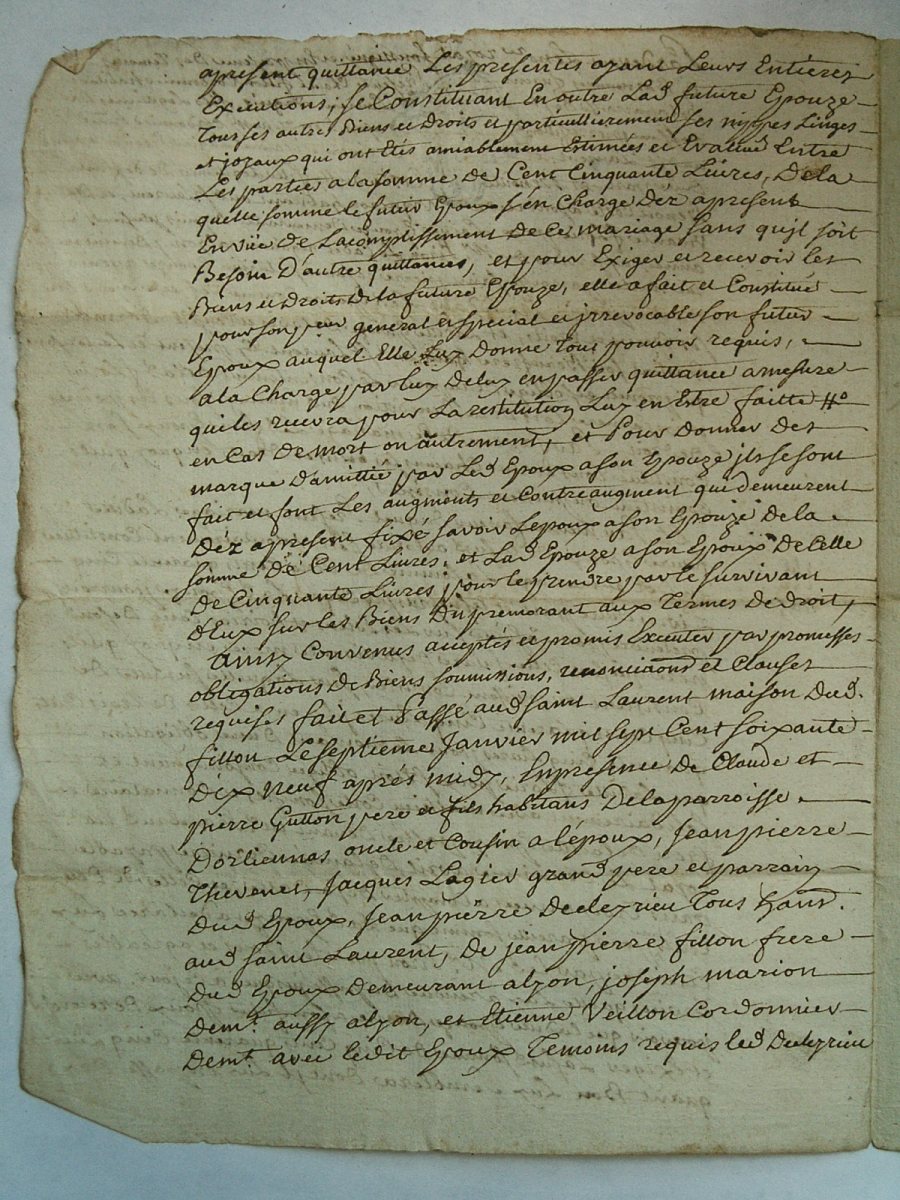 apresent quittance Les presentes ayant Leurs Entieres
Executions, se Constituant En outre Lad. future Epouze
tous ses autres Biens et Droits et particullierement ses nippes Linges
et joyaux qui ont Etés amiablement Estimées et Evalué Entre
Les parties a la somme de Cent Cinquante Livres, De la
quelle somme le futur Epoux s'en Charge Déz apresent
En vüe de Lacomplissement de Ce mariage sans qu'jl soit
Besoin D'autre quittances, et pour Exiger et recevoir les
Biens et Droits de la future Epouze, elle a fait et Constitué
pour son peur general et special et jrrevocable son futur
Epoux auquel Elle Luy Donne tous pouvoir requis,
a la Charge par luy Deluy en passer quittance amesure
quiles recevra pour La restitution Luy en Estre faitte
en Cas de mort ou autrement, et Pour Donner des
marque D'amittié par Led. Epoux a son Epouze jls se sont
fait et font Les augments et Contreaugment qui demeurent
Déz apresent fixé savoir Lepoux a son Epouze De la
somme de Cent Livres, et Lad. Epouze a son Epoux De Celle
De Cinquante Livres pour le prendre par le survivant
d'Eux sur les Biens Du premorant aux Termes de Droit,
ainsy Convenus acceptés et promis Executer par promesses
obligations de Biens soumissions, renonciaons et Clauses
requises fait et Passé aud. saint Laurent maison dud.
fillon Le septieme Janvier mil sept Cent soixante
Dix neuf aprés midy, En presence de Claude et
pierre Gutton pere et fils habitans De la parroisse
Dorlienas oncle et Cousin a l'époux, Jean pierre
Thevenet, Jacques Lagier grand pere et parrain
Dud. Epoux, Jean pierre Decleyrieu Tous hans.
aud. saint Laurent, de jean pierre fillon frere
Dud. Epoux Demeurant alyon, joseph marion
Demt. aussy alyon, et Etienne Veillon Cordonnier
Demt. avec ledit Epoux Temoins requis led. Decleyrieu